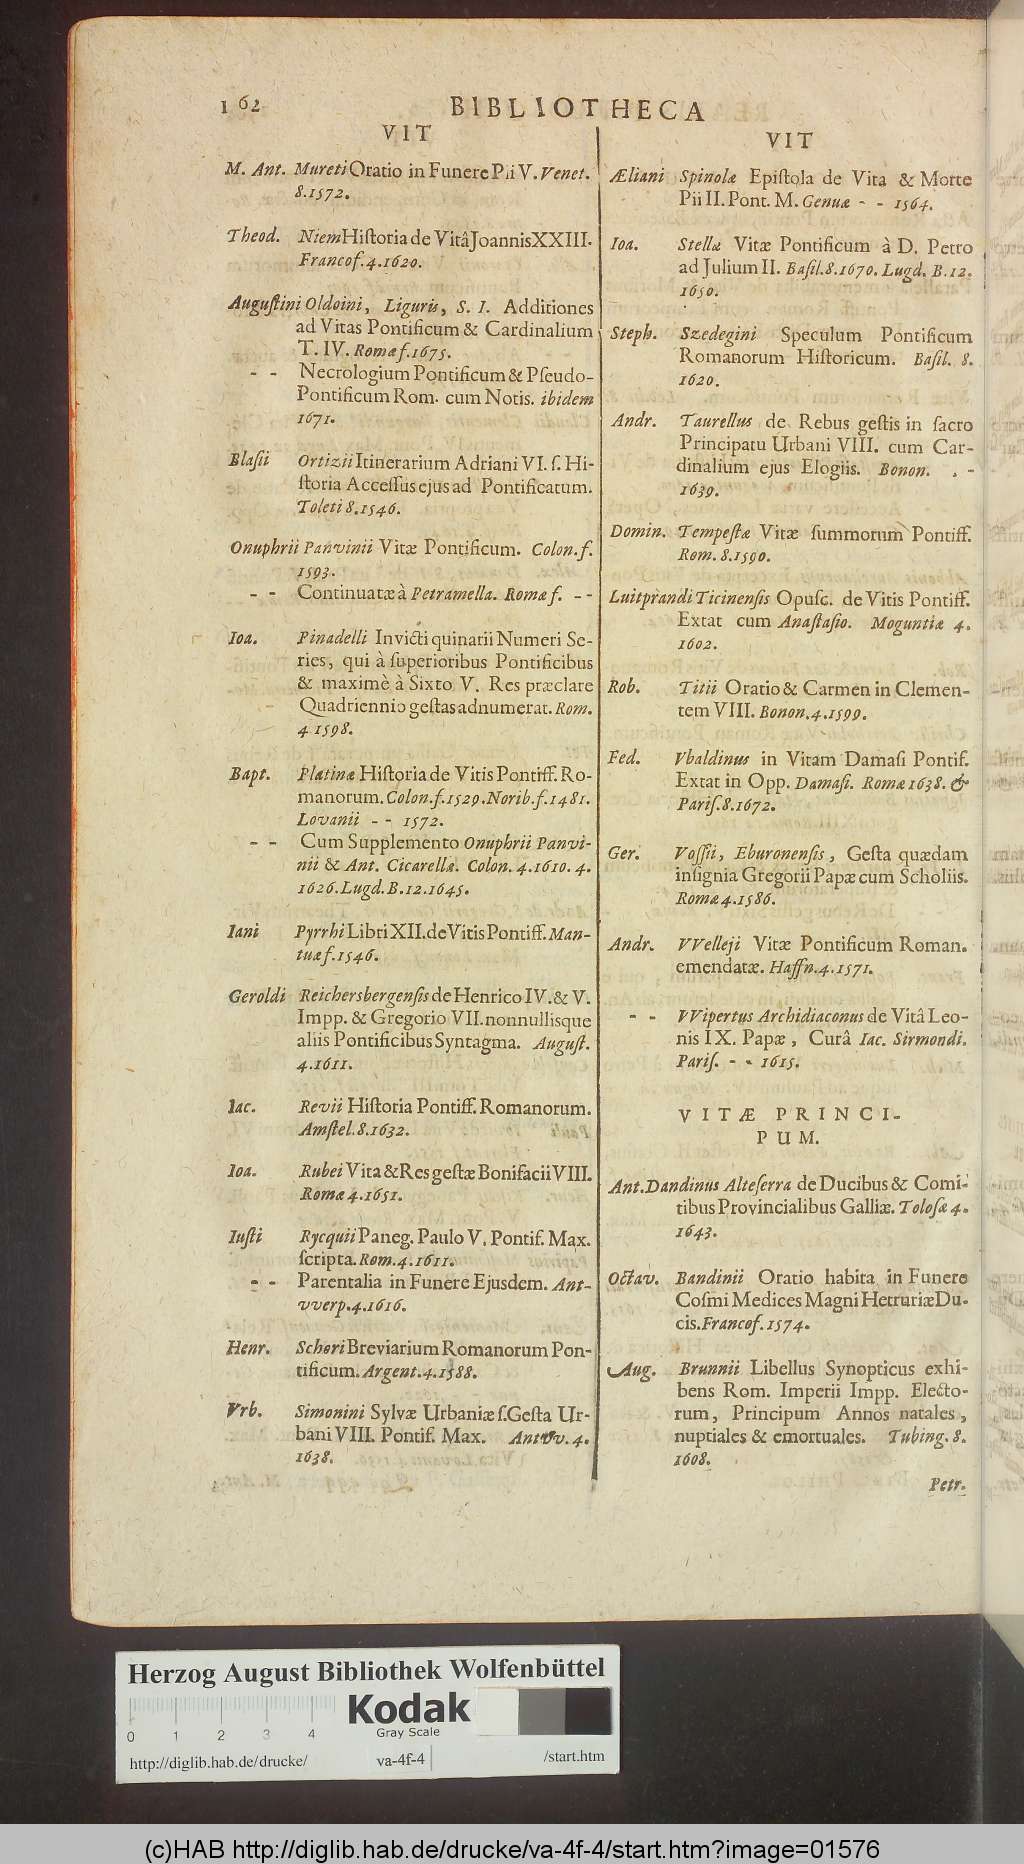 162
BIBLIOTHECA
VIT
M. Ant. Mureti Oratio in Funere Pii V. Venet.
8. 1572.
Theod. Niem Hiſtoria de Vitâ Joannis XXIII.
Francof. 4. 1620.
Auguſtini Oldoini, Liguris, S. I. Additiones
ad Vitas Pontificum & Cardinalium
T. IV. Romæ f. 1675.
- - Necrologium Pontificum & Pſeudo-
Pontificum Rom. cum Notis. ibidem
1671.
Blaſii Ortizii Itinerarium Adriani VI. ſ. Hi-
ſtoria Acceſſus ejus ad Pontificatum.
Toleti 8. 1546.
Onuphrii Panvinii Vitæ Pontificum. Colon. f.
1593.
- - Continuatæ à Petramella. Romæ f. - -
Ioa. Pinadelli Invicti quinarii Numeri Se-
ries, qui à ſuperioribus Pontificibus
& maximè à Sixto V. Res præclare
Quadriennio geſtas adnumerat. Rom.
4 1598.
Bapt. Platinæ Hiſtoria de Vitis Pontiff. Ro-
manorum. Colon. f. 1529. Norib. f. 1481.
Lovanii - - 1572.
- - Cum Supplemento Onuphrii Panvi-
nii & Ant. Cicarellæ. Colon. 4. 1610. 4.
1626. Lugd. B. 12. 1645.
Iani Pyrrhi Libri XII. de Vitis Pontiff. Man-
tuæ f. 1546.
Geroldi Reichersbergenſis de Henrico IV. & V.
Impp. & Gregorio VII. nonnullisque
aliis Pontificibus Syntagma. Auguſt.
4. 1611.
Iac. Revii Hiſtoria Pontiff. Romanorum.
Amſtel. 8. 1632.
Ioa. Rubei Vita & Res geſtæ Bonifacii VIII.
Romæ 4. 1651.
Iuſti Rycquii Paneg. Paulo V. Pontif. Max.
ſcripta. Rom. 4. 1611.
- - Parentalia in Funere Ejusdem. Ant-
vverp. 4. 1616.
Henr. Scheri Breviarium Romanorum Pon-
tificum. Argent. 4. 1588.
Vrb. Simonini Sylvæ Urbaniæ ſ. Geſta Ur-
bani VIII. Pontif. Max. Antvv. 4.
1638.
VIT
Æliani Spinolæ Epiſtola de Vita & Morte
Pii II. Pont. M. Genuæ - - 1564.
Ioa. Stellæ Vitæ Pontificum à D. Petro
ad Julium II. Baſil. 8. 1670. Lugd. B. 12.
1650.
Steph. Szedegini Speculum Pontificum
Romanorum Hiſtoricum. Baſil. 8.
1620.
Andr. Taurellus de Rebus geſtis in ſacro
Principatu Urbani VIII. cum Car-
dinalium ejus Elogiis. Bonon. - -
1639.
Domin. Tempeſtæ Vitæ ſummorum Pontiff.
Rom. 8. 1590.
Luitprandi Ticinenſis Opuſc. de Vitis Pontiff.
Extat cum Anaſtaſio. Moguntiæ 4.
1602.
Rob. Titii Oratio & Carmen in Clemen-
tem VIII. Bonon. 4. 1599.
Fed. Vbaldinus in Vitam Damaſi Pontif.
Extat in Opp. Damaſi. Romæ 1638. &
Pariſ. 8. 1672.
Ger. Voſſii, Eburonenſis, Geſta quædam
inſignia Gregorii Papæ cum Scholiis.
Romæ 4. 1586.
Andr. VVelleji Vitæ Pontificum Roman.
emendatæ. Haffn. 4. 1571.
- - VVipertus Archidiaconus de Vitâ Leo-
nis IX. Papæ, Curâ Iac. Sirmondi.
Pariſ. - - 1615.
VITÆ PRINCI-
PUM.
Ant. Dandinus Alteſerra de Ducibus & Comi-
tibus Provincialibus Galliæ. Toloſæ 4.
1643.
Octav. Bandinii Oratio habita in Funere
Coſmi Medices Magni Hetruriæ Du-
cis. Francof. 1574.
Aug. Brunnii Libellus Synopticus exhi-
bens Rom. Imperii Impp. Electo-
rum, Principum Annos natales,
nuptiales & emortuales. Tubing. 8.
1608.
Petr.
Herzog August Bibliothek Wolfenbüttel
Kodak
Gray Scale
0 1 2 3 4
http://diglib.hab.de/drucke/ va-4f-4 /start.htm
(c)HAB http://diglib.hab.de/drucke/va-4f-4/start.htm?image=01576